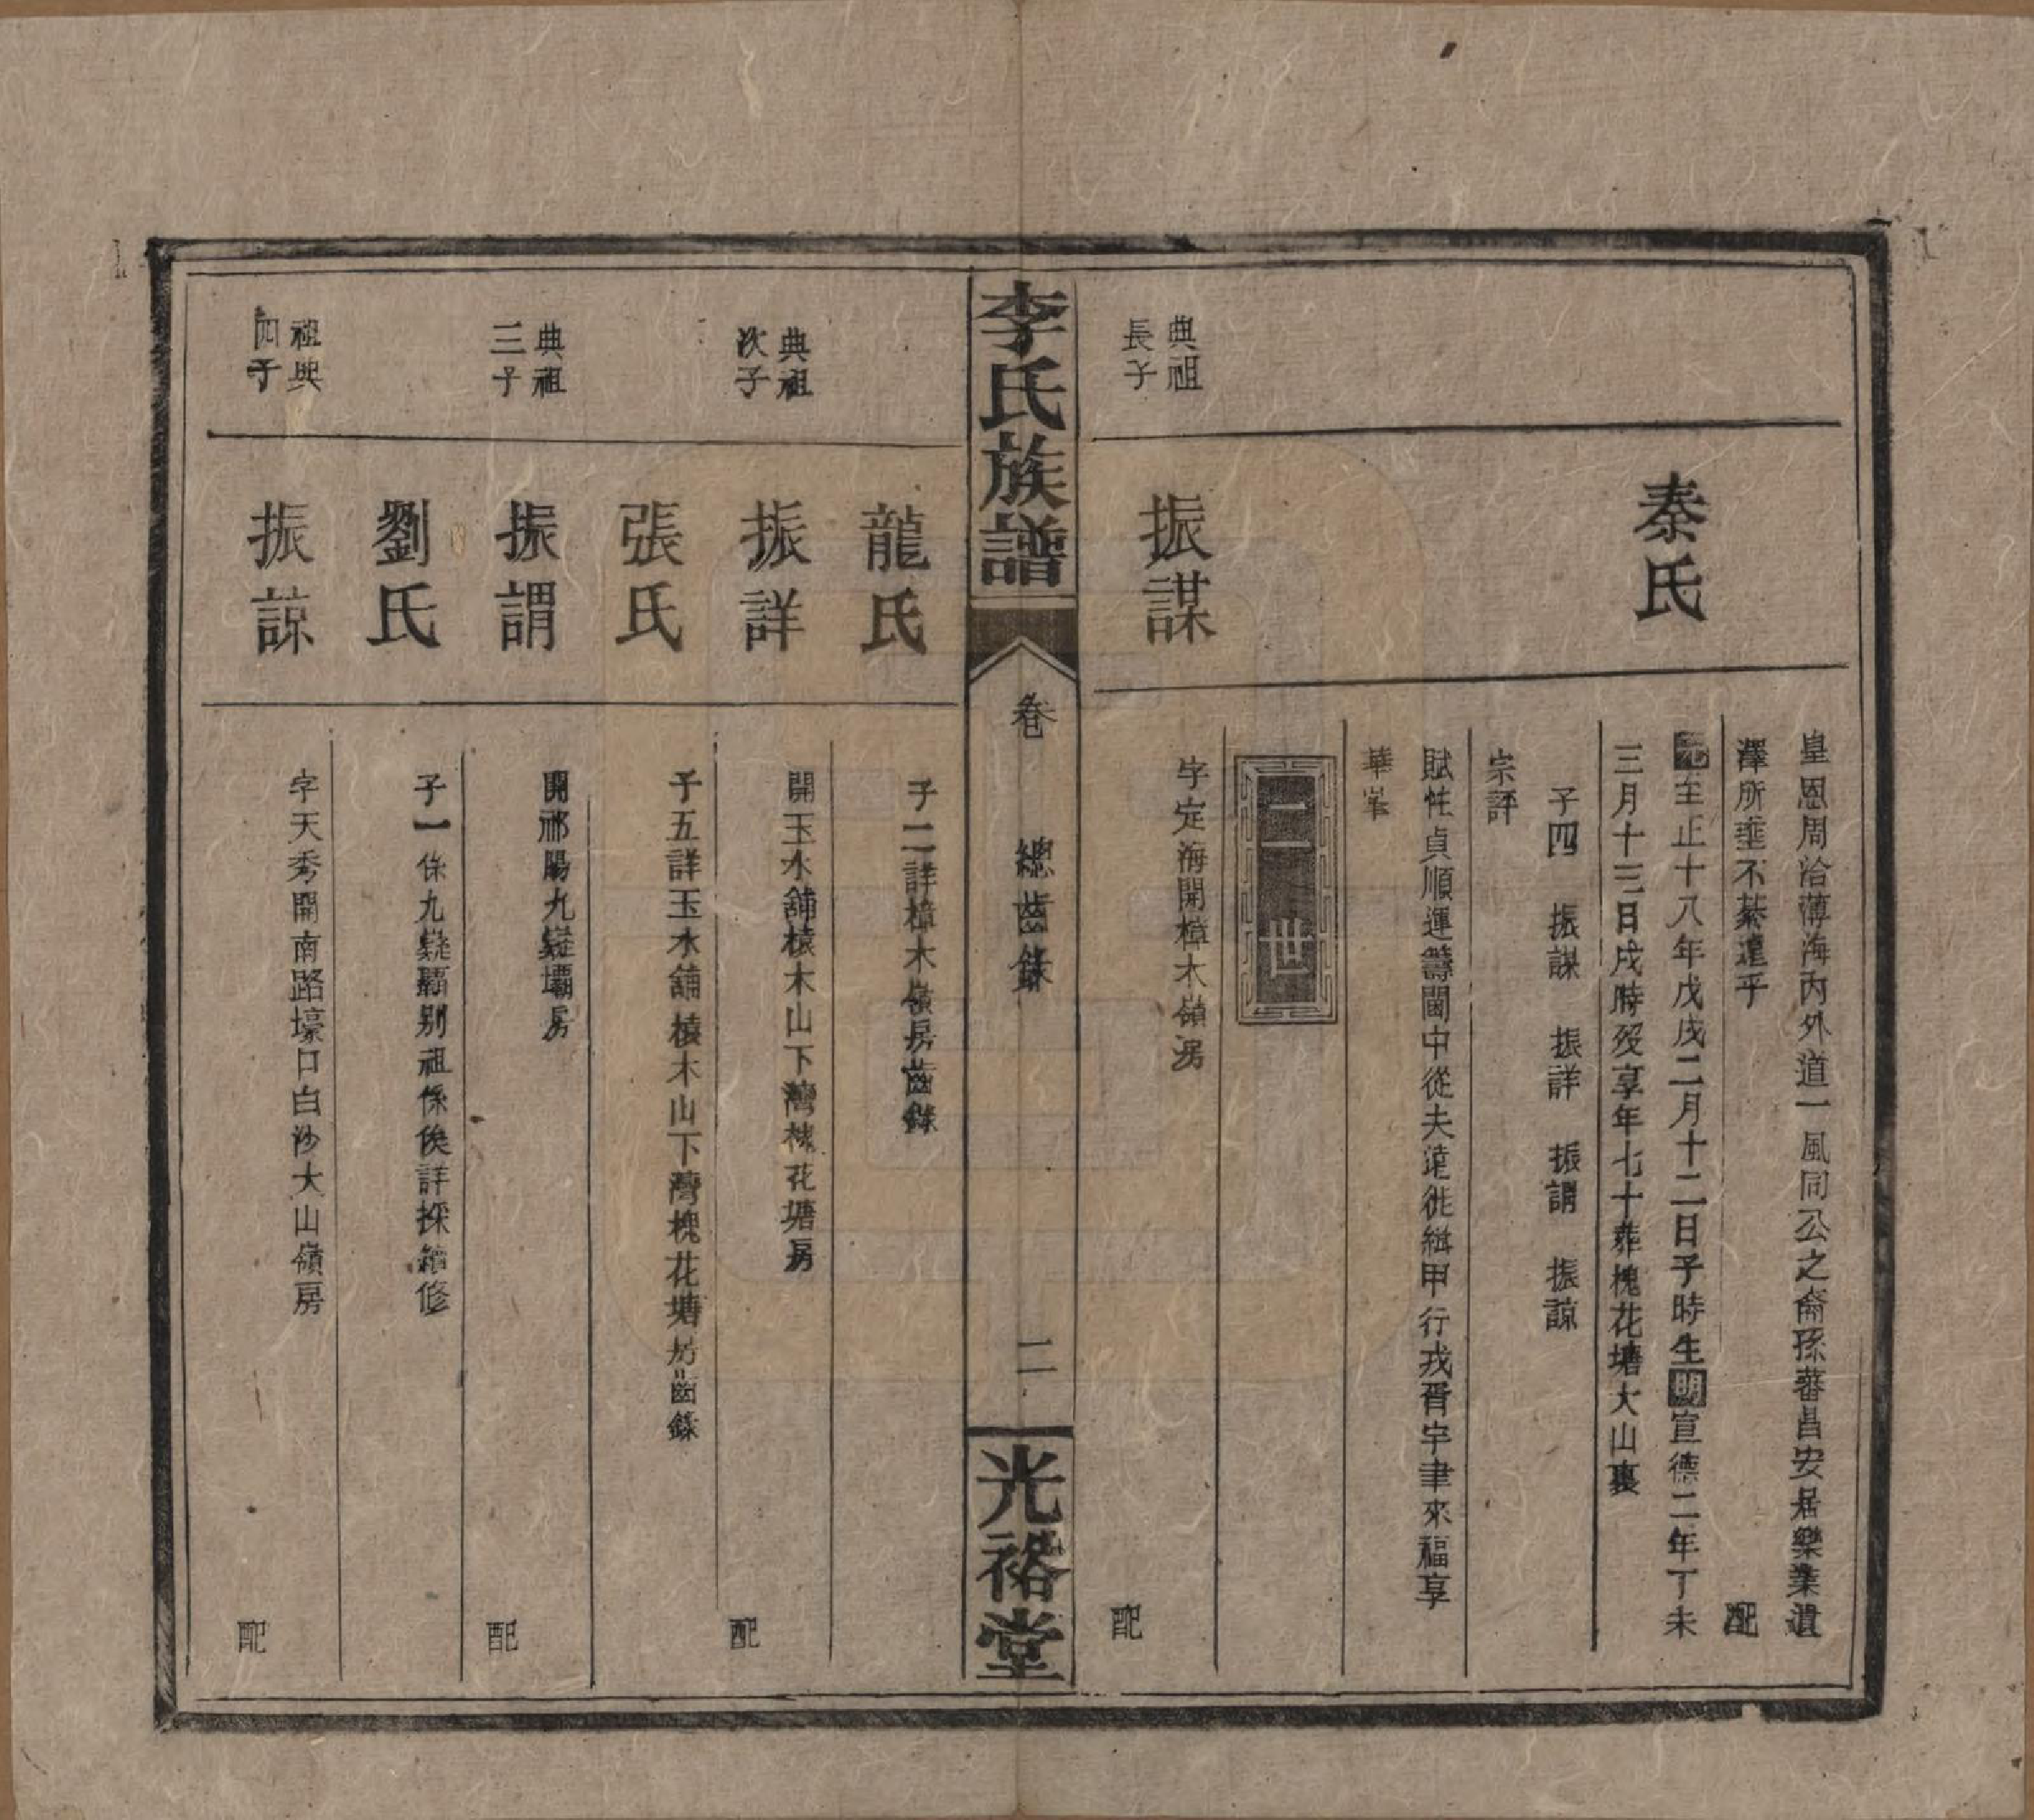 皇恩周洽薄海內外道一風同公之裔孫蕃昌安居樂業遺
澤所垂不綦遠乎
配
秦氏
元至正十八年戊戌二月十二日子時生明宣德二年丁未
三月十三日戌時歿享年七十葬槐花塘大山裏
子四 振謀 振詳 振謂 振諒
宗評
賦性貞順運籌閫中從夫遠徙緝甲行戎胥宇聿來福享
華峯
二世
典祖
長子
振謀
字定海開樟木嶺房
配
李氏族譜
卷
總齒錄
二
光裕堂
龍氏
子二詳樟木嶺房齒錄
典祖
次子
振詳
開玉水舖榬木山下灣槐花塘房
配
張氏
子五詳玉水舖榬木山下灣槐花塘房齒錄
典祖
三子
振謂
開祁陽九嶷壩房
配
劉氏
子一係九嶷壩別祖係俟詳採續修
祖典
四子
振諒
字天秀開南路壕口白沙大山嶺房
配